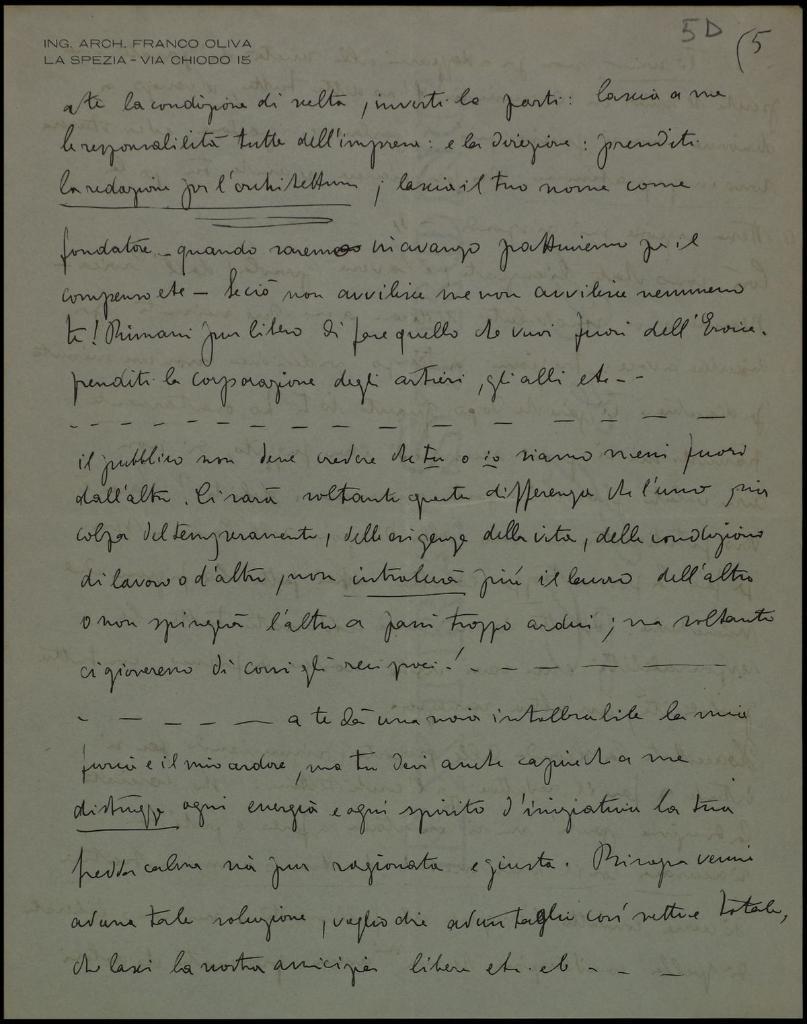 5D
(5
ING. ARCH. FRANCO OLIVA
LA SPEZIA - VIA CHIODO 15
a te la condizione di scelta, inverti le parti: lascia a me
le responsabilità tutte dell'impresa: e la direzione: prenditi
la redazione per l'architettura; lascia il tuo nome come
fondatore - quando saremo in avanzo pattuiremo per il
compenso etc - Se ciò non avvilisce me non avvilisce nemmeno
te! Rimani pur libero di fare quello che vuoi fuori dell'Eroica.
prenditi la corporazione degli artieri, gli alli etc - -
il pubblico non deve credere che tu o io siamo messi fuori
dall'altro. Ci sarà soltanto questa differenza che l'uno, per
colpa del temperamento, delle esigenze della vita, delle condizioni
di lavoro o d'altro, non intralcerà più il lavoro dell'altro
o non spingerà l'altro a passi troppo ardui; ma soltanto
ci gioveremo di consigli reciproci!
a te dà una noia intollerabile la mia
furia e il mio ardore, ma tu devi anche capire che a me
distrugge ogni energia e ogni spirito d'iniziativa la tua
fredda calma sia pur ragionata e giusta. Bisogna venire
ad una tale soluzione, voglio dire ad un taglio così netto e totale,
che lasci la nostra amicizia libera etc. etc - - -